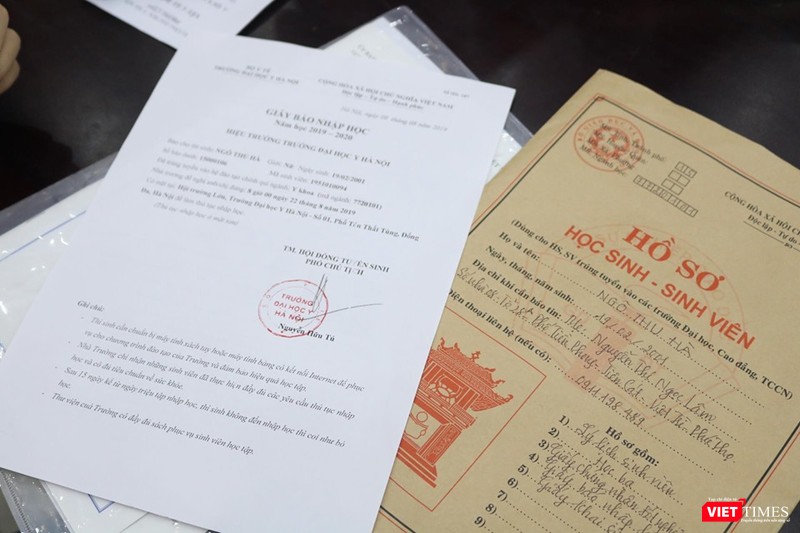 BỘ Y TẾ
TRƯỜNG ĐẠI HỌC Y HÀ NỘI
CỘNG HÒA XÃ HỘI CHỦ NGHĨA VIỆT NAM
Độc lập - Tự do - Hạnh phúc
Hà Nội, ngày 09 tháng 08 năm 2019
GIẤY BÁO NHẬP HỌC
Năm học 2019 - 2020
HIỆU TRƯỞNG TRƯỜNG ĐẠI HỌC Y HÀ NỘI
Báo cho thí sinh: NGÔ THU HÀ Giới: Nữ Ngày sinh: 19/02/2001
Số báo danh: Mã sinh viên: 1951010094
Đã trúng tuyển vào hệ đào tạo chính quy ngành: Y khoa (mã ngành: 7720101)
Nhà trường đề nghị anh/chị đúng: 8 giờ 00 ngày 22 tháng 8 năm 2019
Có mặt tại: Hội trường Lớn, Trường Đại học Y Hà Nội - Số 01, Phố Tôn Thất Tùng, Đống
Đa, Hà Nội để làm thủ tục nhập học.
(Thủ tục nhập học ở mặt sau)
TM. HỘI ĐỒNG TUYỂN SINH
PHÓ CHỦ TỊCH
TRƯỜNG
ĐẠI HỌC Y
HÀ NỘI
Nguyễn Hữu Tú
Ghi chú:
- Thí sinh cần chuẩn bị máy tính xách tay hoặc máy tính bảng có kết nối Internet để phục
vụ cho chương trình đào tạo của Trường và đảm bảo hiệu quả học tập.
- Nhà Trường chỉ nhận những sinh viên đã thực hiện đầy đủ các yêu cầu thủ tục nhập
học và có đủ tiêu chuẩn về sức khỏe.
- Sau 15 ngày kể từ ngày triệu tập nhập học, thí sinh không đến nhập học thì coi như bỏ
học.
- Thư viện của Trường có đầy đủ sách phục vụ sinh viên học tập.
Thành phố:
CỘNG HÒA XÃ HỘI
Độc lập - Tự do
HỒ SƠ
HỌC SINH - SINH VIÊN
(Dùng cho HS, SV trúng tuyển vào các trường Đại học, Cao đẳng, TCCN)
Họ và tên: NGÔ THU HÀ
Ngày, tháng, năm sinh: 19/02/2001
Địa chỉ khi cần báo tin: Mẹ: Nguyễn Thị Ngọc Lâm
Phố Tiên Phong - Tiên Cát - Việt Trì - Phú Thọ
Điện thoại liên hệ (nếu có): 0911.198.489
Hồ sơ gồm:
1). Lý lịch sinh viên
2). Học bạ
3). Giấy chứng nhận
4). Giấy báo nhập
5). Giấy khai
6).
7).
8).
9).
VIETTIMES